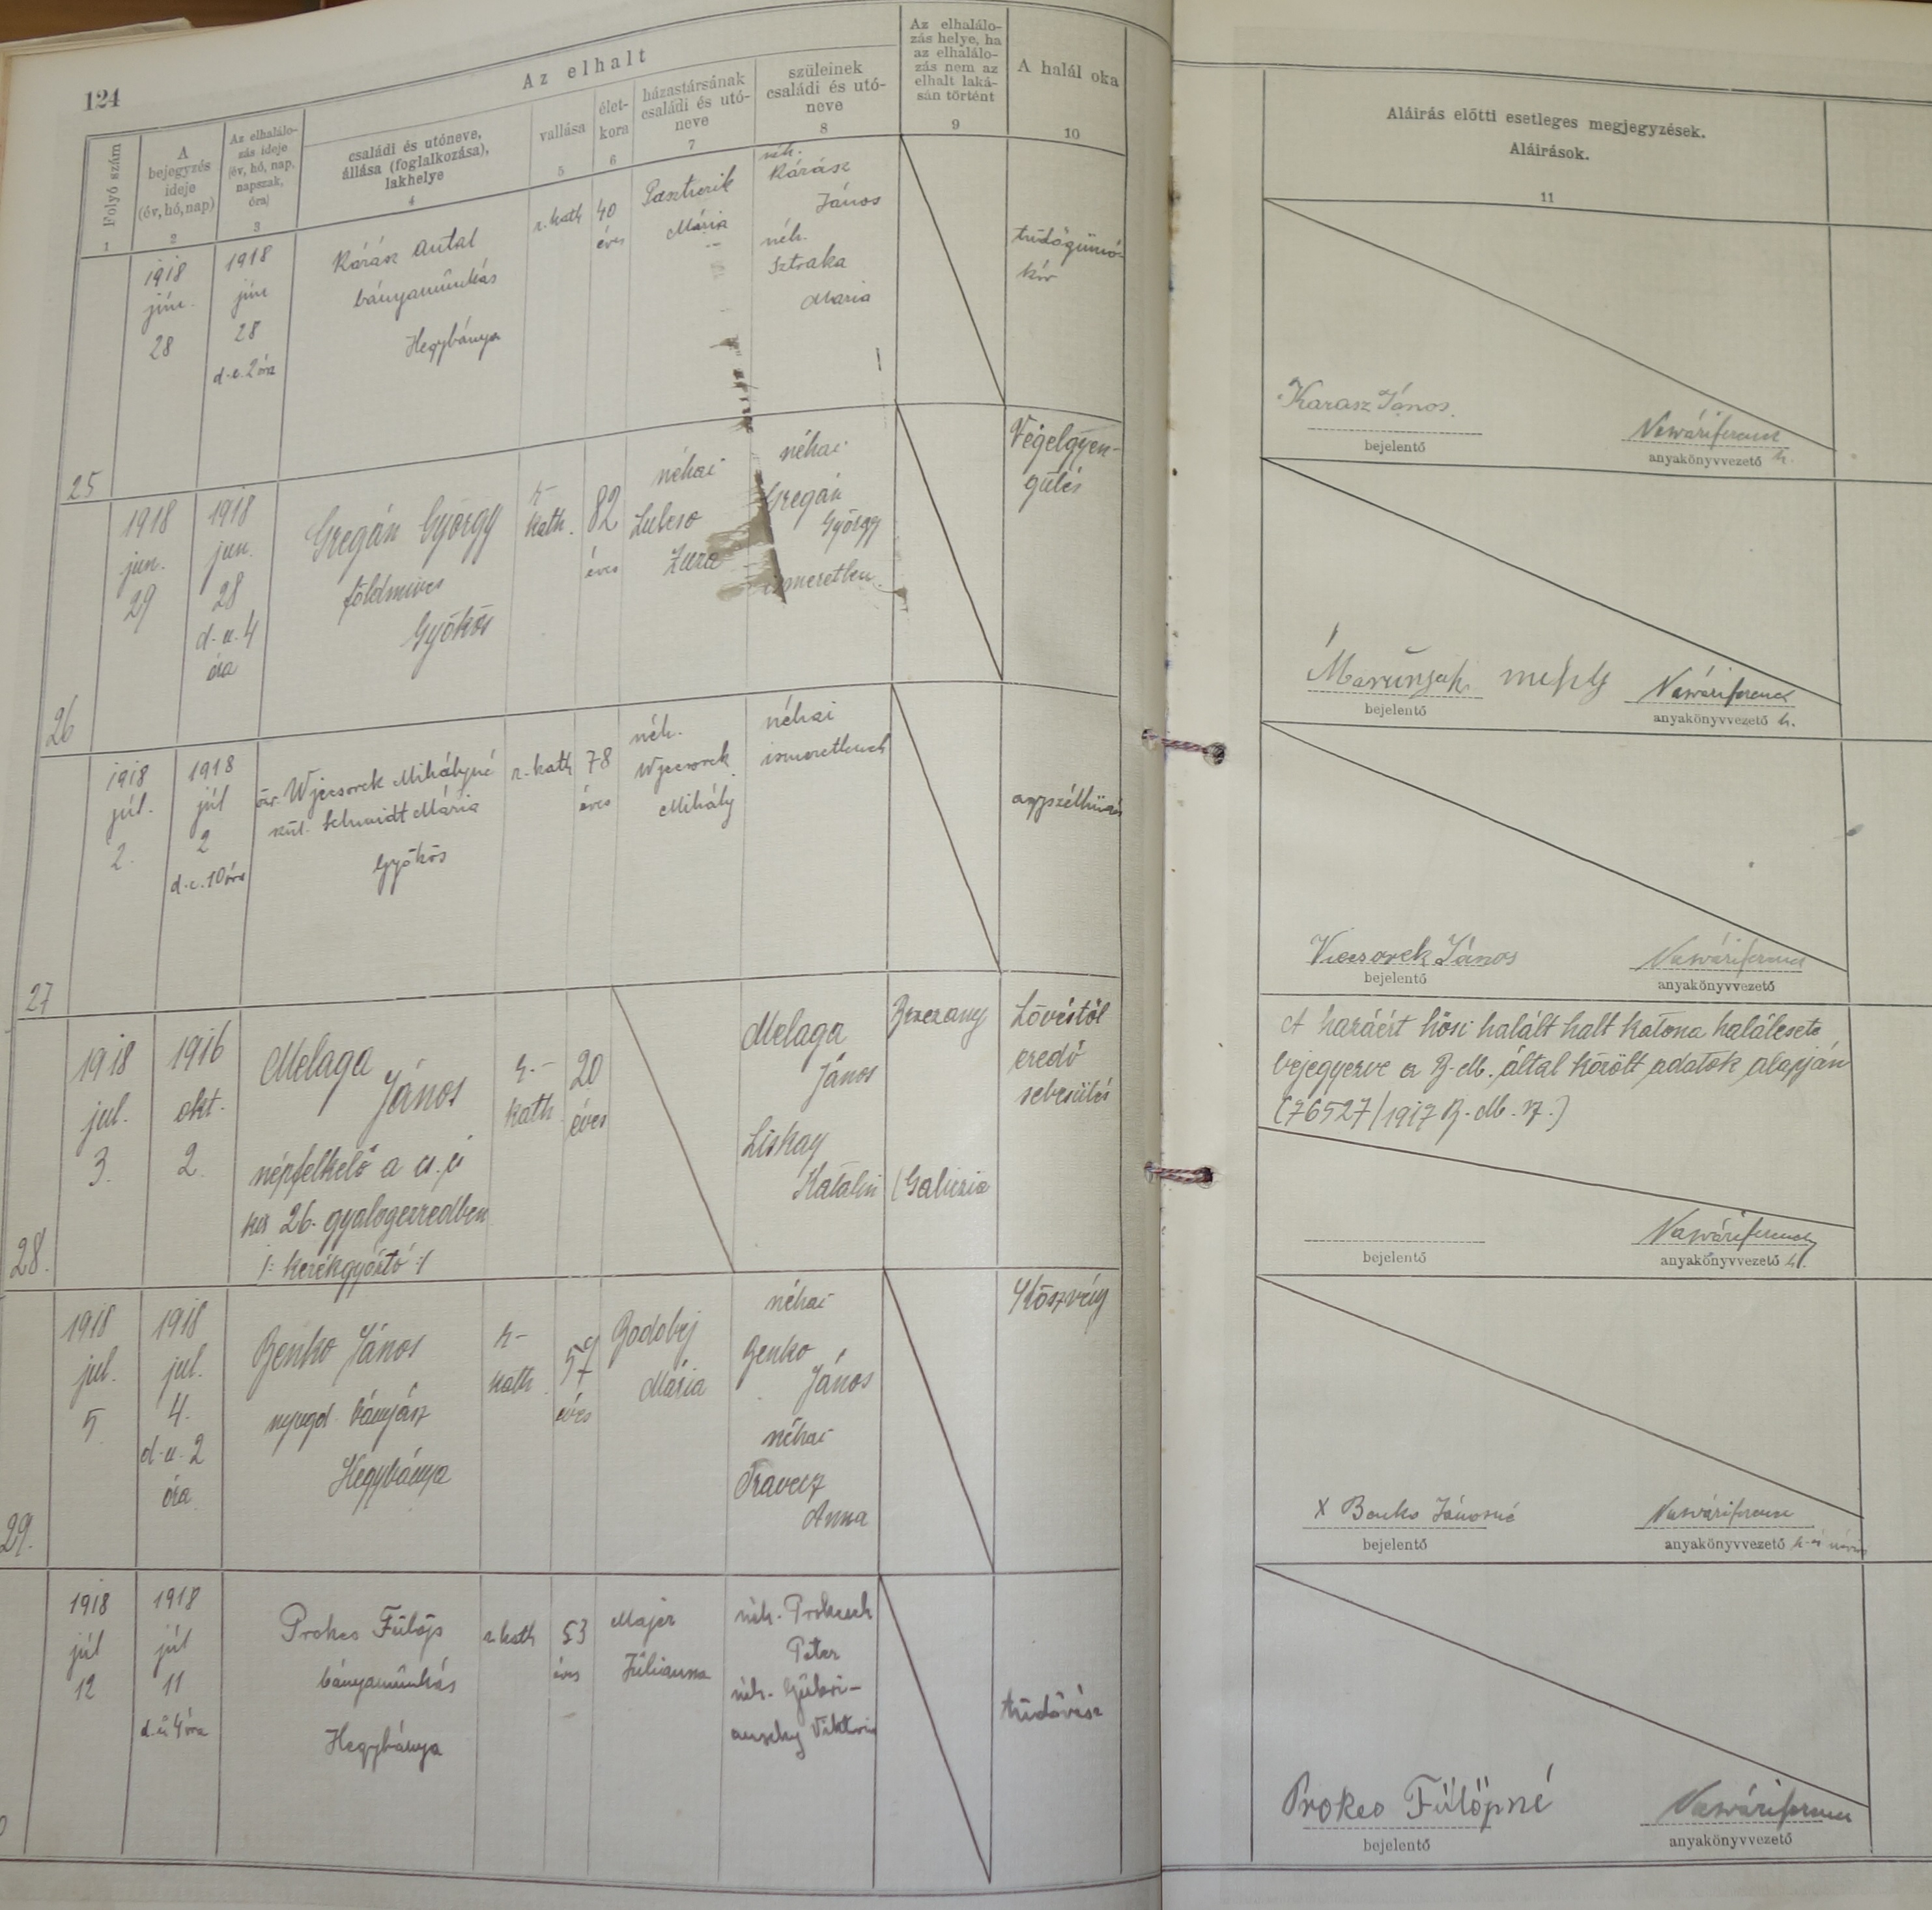 124
Az elhalt
Folyó szám
1
A
bejegyzés
ideje
(év, hó, nap)
2
Az elhalálo-
zás ideje
(év, hó, nap,
napszak,
óra)
3
családi és utóneve,
állása (foglalkozása),
lakhelye
4
vallása
5
élet-
kora
6
házastársának
családi és utó-
neve
7
szüleinek
családi és utó-
neve
8
Az elhalálo-
zás helye, ha
az elhalálo-
zás nem az
elhalt laká-
sán történt
9
A halál oka
10
Aláírás előtti esetleges megjegyzések.
Aláírások.
11
25
1918
jún.
28
1918
jún
28
d.e. 2 óra
Kárász Antal
bányamunkás
Hegybánya
r. kath
40
éves
Mária
néh.
Kárász
János
néh.
Sztraka
Maria
tüdőgümő-
kór
Karasz János.
bejelentő
anyakönyvvezető h.
26
1918
jun.
29
1918
jun.
28
d.u. 4
óra
Gregán György
földmives
Gyökös
r.
kath.
82
éves
néhai
Zuza
néhai
Gregán
György
ismeretlen
Végelgyen-
gülés
bejelentő
anyakönyvvezető h.
27
1918
júl.
2.
1918
júl
2
d.e. 10 óra
öz. Wjecsorek Mihályné
szül. Schmidt Mária
Gyökös
r. kath
78
éves
néh.
Wjecsorek
Mihály
néhai
ismeretlenek
agyszélhüdés
Viecsorek János
bejelentő
anyakönyvvezető
28.
1918
jul.
3.
1916
okt.
2.
Melaga
János
népfelkelő a cs. és
kir 26. gyalogezredben
/: kerékgyártó :/
r.
kath
20
éves
Melaga
János
Liskay
Katalin
Brzezany
(Galicia
Lövéstől
eredő
sebesülés
A hazáért hősi halált halt katona halálesete
bejegyezve a B.M. által közölt adatok alapján
(76527/1917 B.M. sz.)
bejelentő
anyakönyvvezető h.
29.
1918
jul.
5
1918
jul.
4.
d.u. 2
óra
Benko János
nyugd. bányász
Hegybánya
r.
kath
éves
Mária
néhai
Benko
János
néhai
Pravecz
Anna
X Benko Jánosné
bejelentő
anyakönyvvezető
1918
júl
12
1918
júl
11
d.u 4 óra
Prokes Fülöp
bányamunkás
Hegybánya
r. kath
53
éves
Majer
Júlianna
néh. Prokesch
Péter
néh.
Viktoria
tüdővész
Prokes Fülöpné
bejelentő
anyakönyvvezető